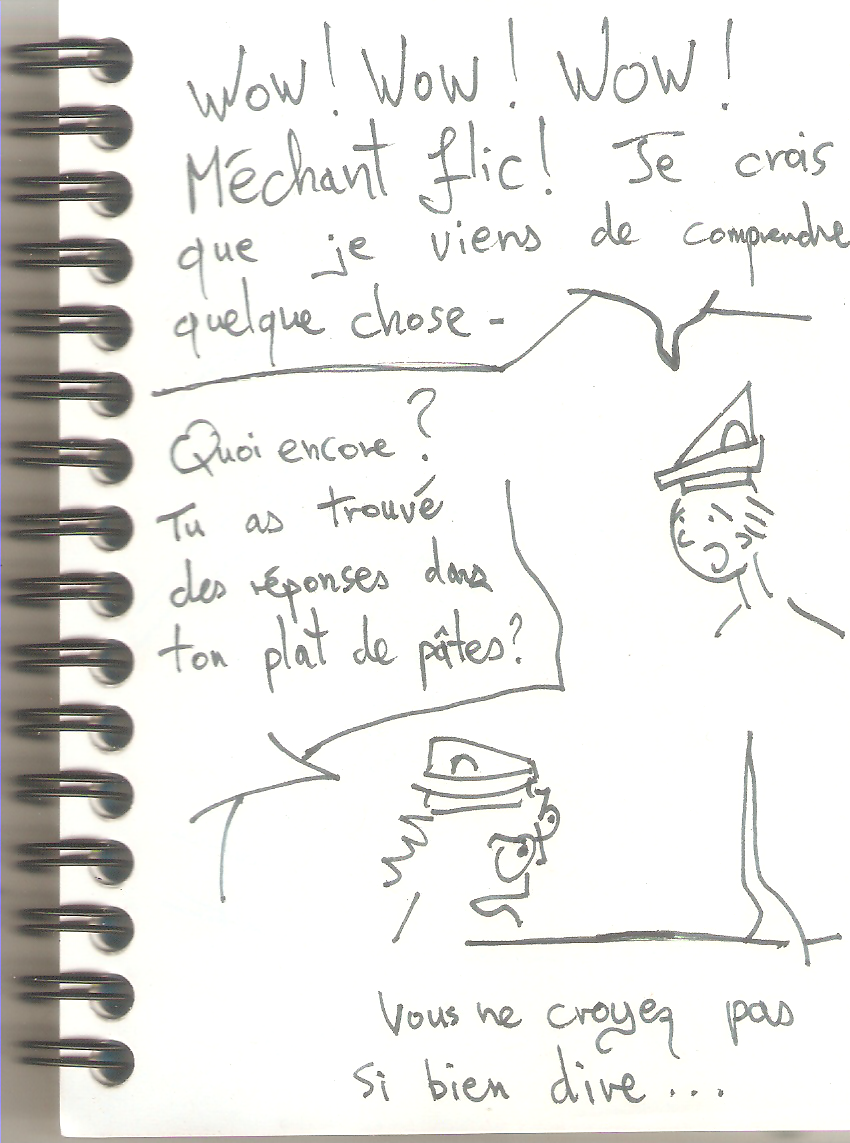 Wow! Wow! Wow!
Méchant flic! Je crois
que je viens de comprendre
quelque chose -
Quoi encore?
Tu as trouvé
des réponses dans
ton plat de pâtes?
Vous ne croyez pas
si bien dire...